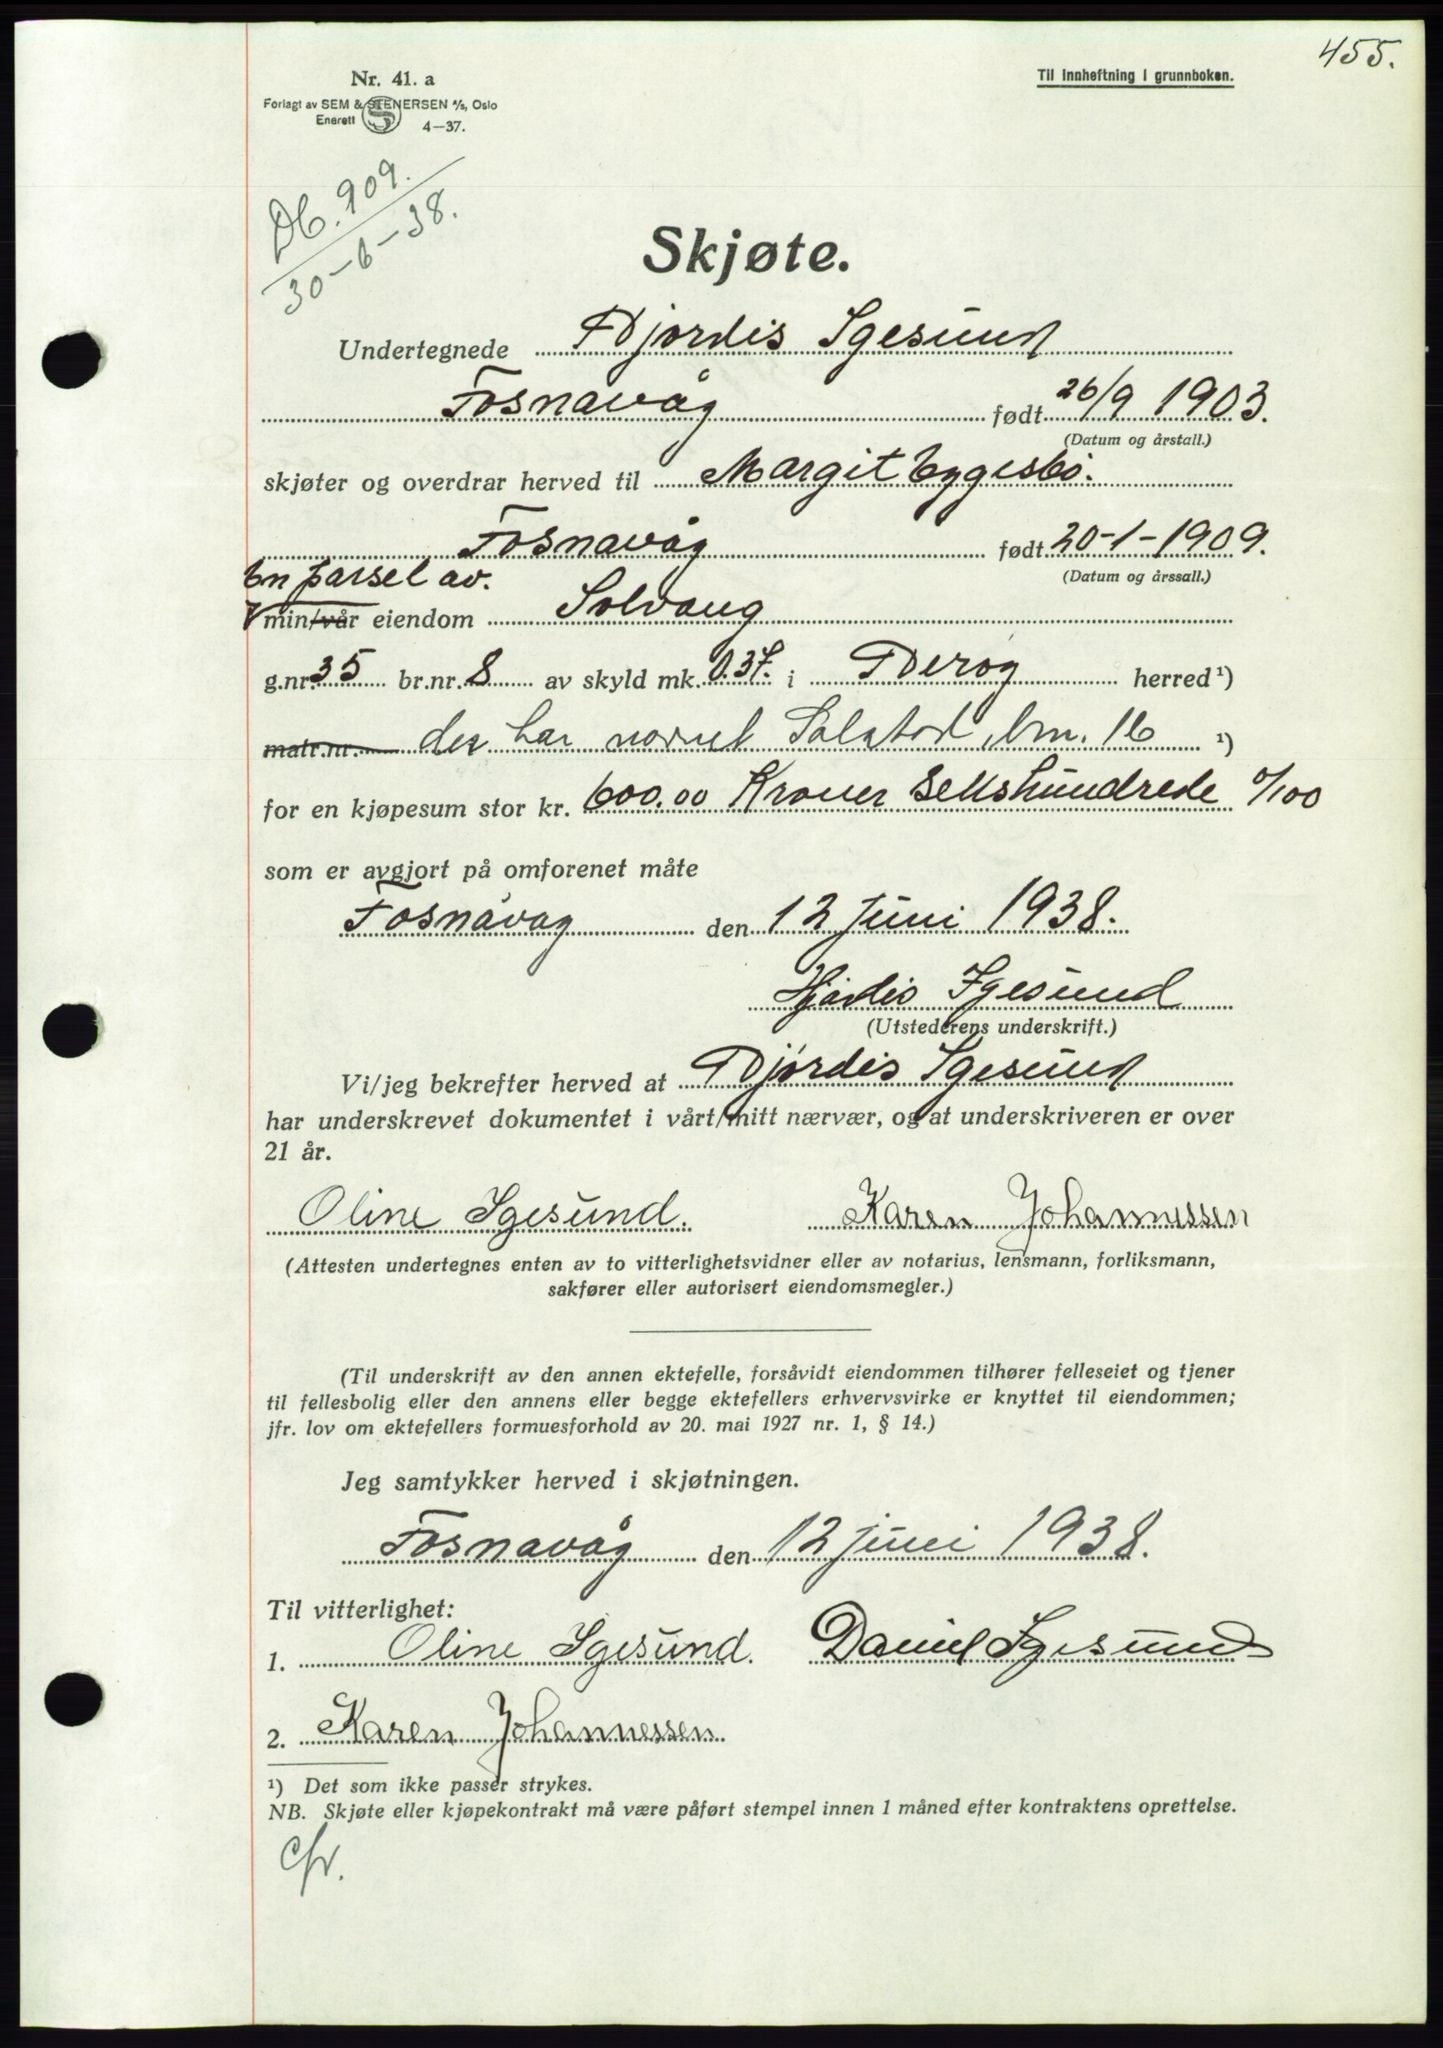 455.
Nr. 41. a
Til innheftning i grunnboken.
Forlagt av SEM & STENERSEN A/S, Oslo
Enerett
4—37.
Db. 909.
30-6-38.
Skjøte.
Undertegnede Hjørdis Igesund
Fosnavåg født 26/9 1903.
(Datum og årstall.)
skjøter og overdrar herved til Margit Eggesbø.
Fosnavåg født 20-1-1909.
(Datum og årssall.)
En parsel av.
min/vår eiendom Solvang
g.nr. 35 br.nr. 8 av skyld mk. 0.37. i Herøy herred ¹)
matr.nr. der har navnet Solstad, bnr. 16 ¹)
for en kjøpesum stor kr. 600.00 Kroner Sekshundrede 0/100
som er avgjort på omforenet måte
Fosnavåg den 12 Juni 1938.
Hjørdis Igesund
(Utstederens underskrift.)
Vi/jeg bekrefter herved at Hjørdis Igesund
har underskrevet dokumentet i vårt/mitt nærvær, og at underskriveren er over
21 år.
Oline Igesund. Karen Johannessen
(Attesten undertegnes enten av to vitterlighetsvidner eller av notarius, lensmann, forliksmann,
sakfører eller autorisert eiendomsmegler.)
(Til underskrift av den annen ektefelle, forsåvidt eiendommen tilhører felleseiet og tjener
til fellesbolig eller den annens eller begge ektefellers erhvervsvirke er knyttet til eiendommen;
jfr. lov om ektefellers formuesforhold av 20. mai 1927 nr. 1, § 14.)
Jeg samtykker herved i skjøtningen.
Fosnavåg den 12 juni 1938.
Til vitterlighet:
1. Oline Igesund. Daniel Igesund
2. Karen Johannessen.
¹) Det som ikke passer strykes.
NB. Skjøte eller kjøpekontrakt må være påført stempel innen 1 måned efter kontraktens oprettelse.